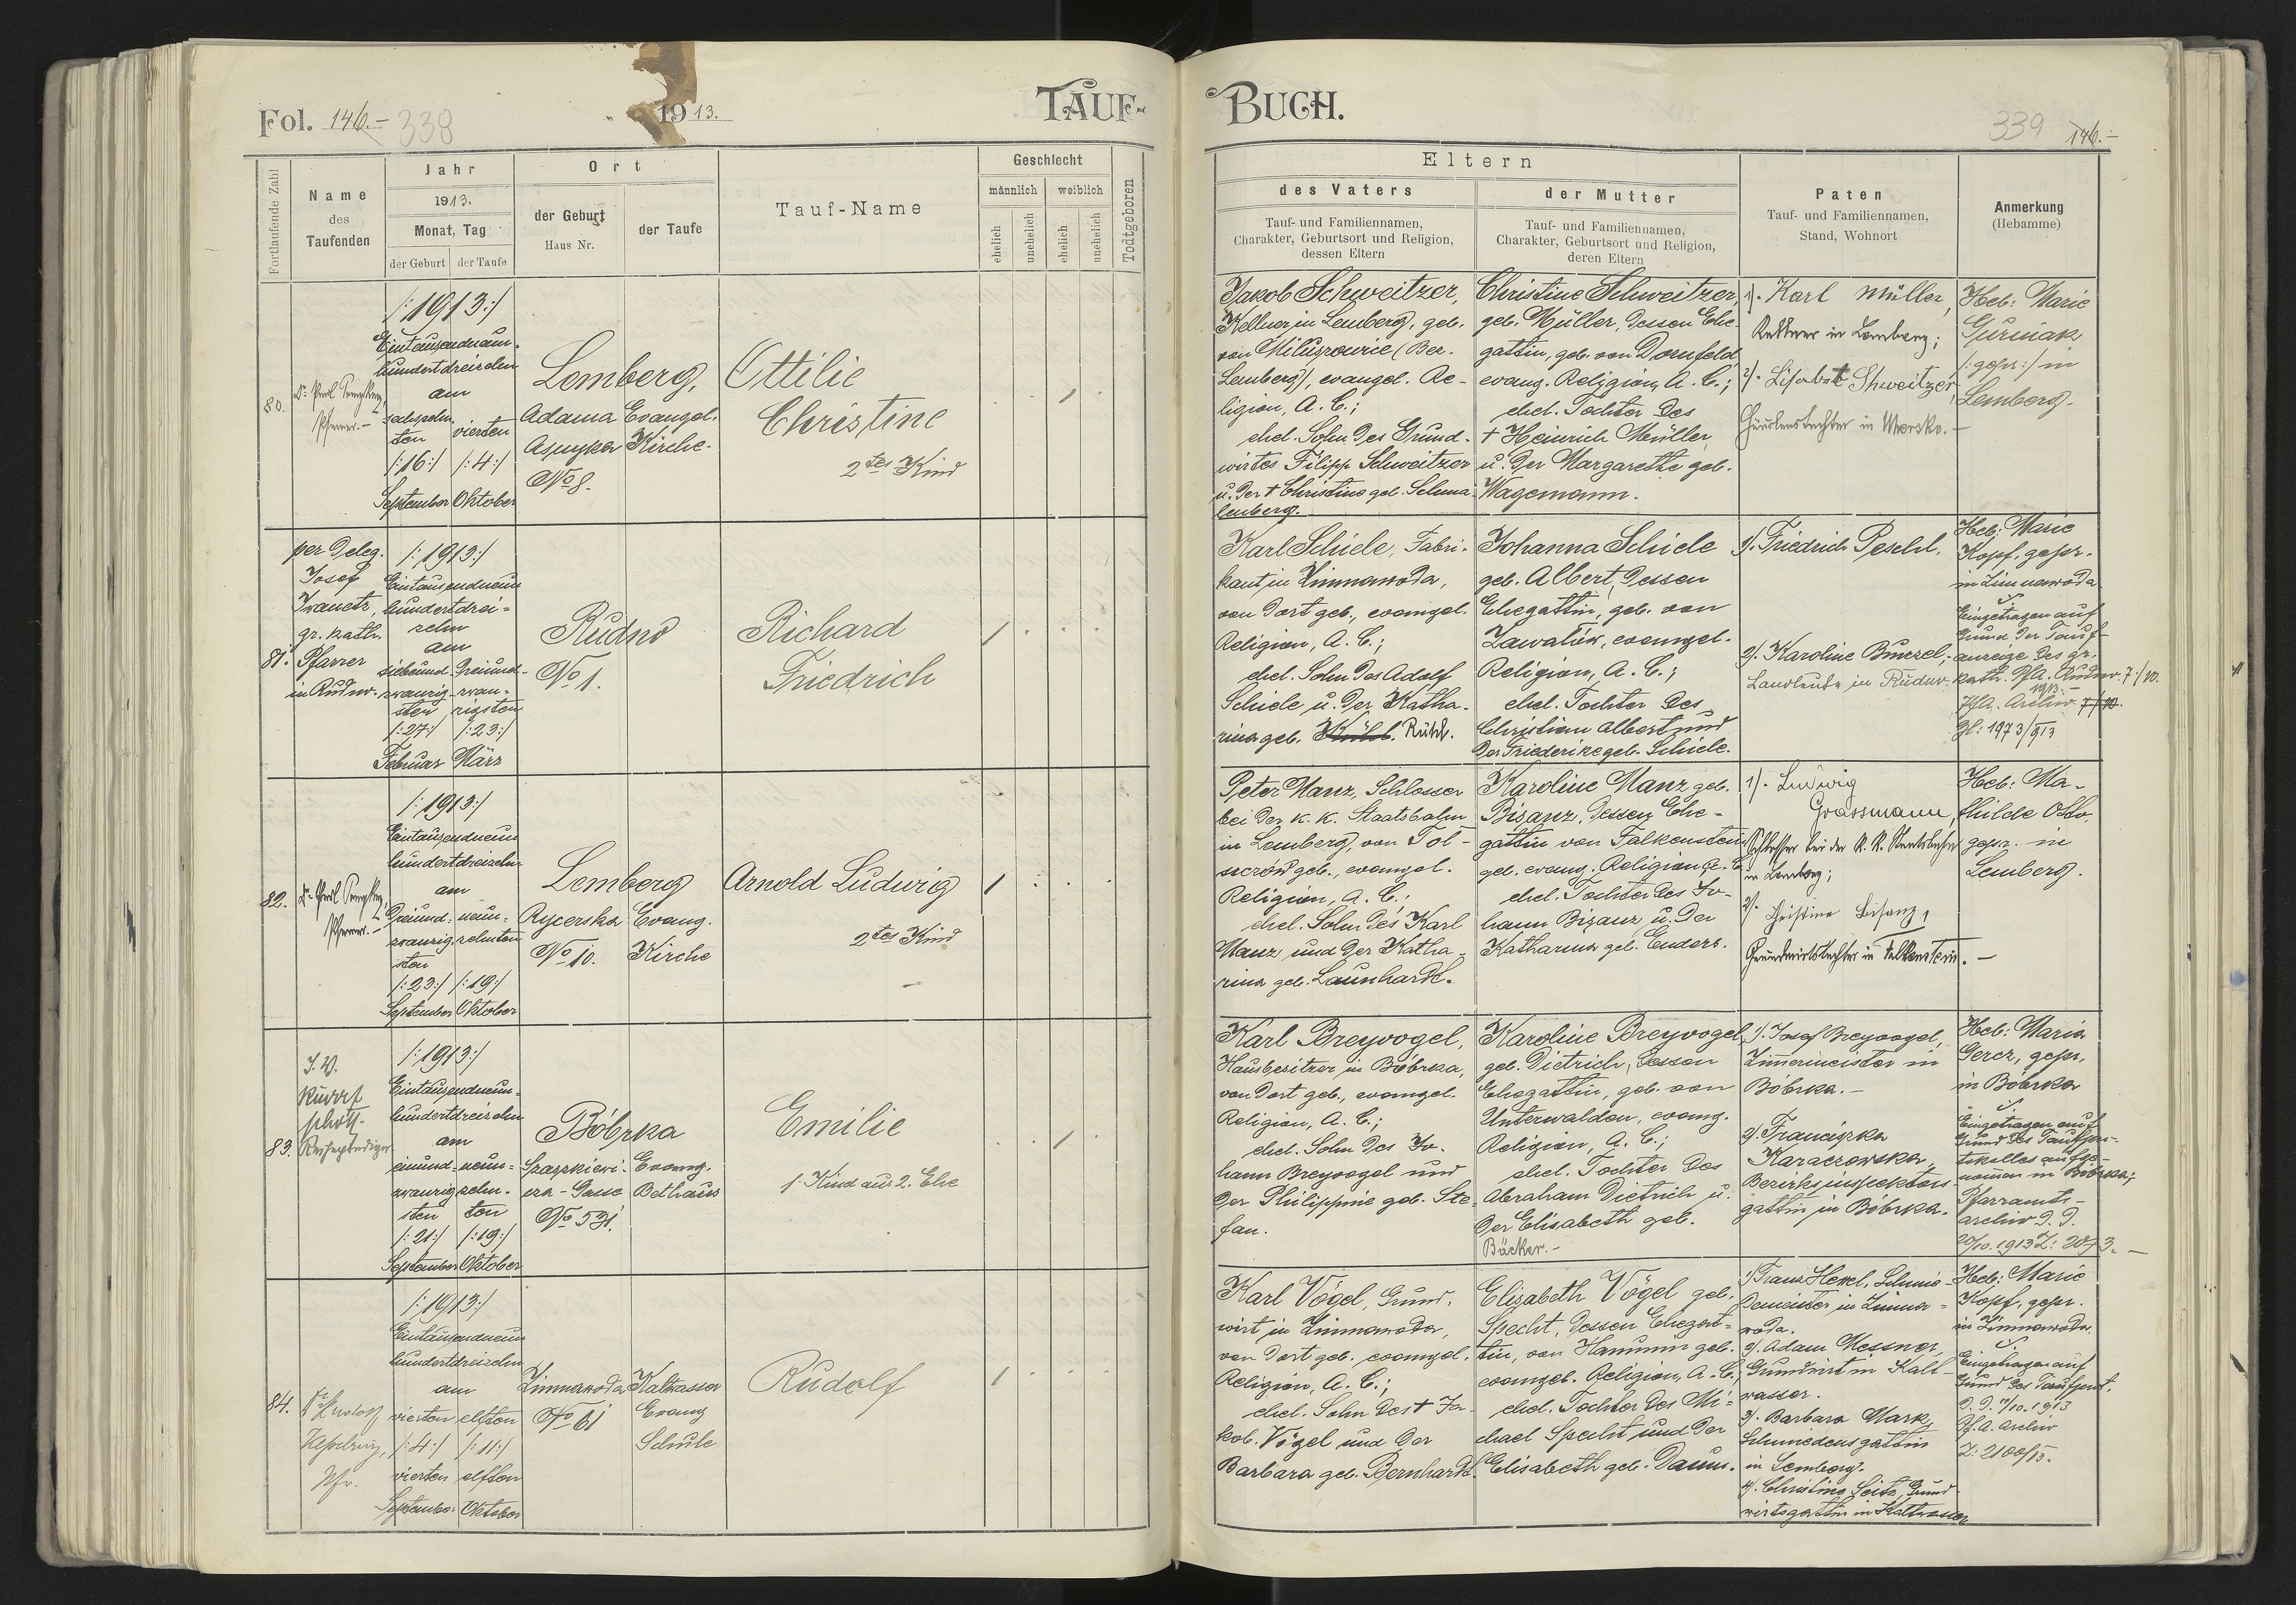 Fol. 146.- 338
1913.
TAUF-
Fortlaufende Zahl
Name
des
Taufenden
Jahr
1913.
Monat, Tag
der Geburt
der Taufe
Ort
der Geburt
Haus Nr.
der Taufe
Tauf-Name
Geschlecht
männlich
weiblich
ehelich
unehelich
ehelich
unehelich
Todtgeboren
80.
Pfarrer.-
/:1913:/
Eintausendneun-
hundertdreizehn
am
sechzehn-
ten
/:16:/
September
vierten
/:4:/
Oktober
Lemberg,
Adama
Asnyka
No 8.
Evangel.
Kirche.
Ottilie
Christine
2tes Kind
81.
per Deleg.
Josef
Iwanetz,
gr. kath.
Pfarrer
in Rudno.
/:1913:/
Eintausendneun
hundertdrei=
zehn
am
siebund-
zwanzig-
sten
/:27:/
Februar
dreiund-
zwan-
zigsten
/:23:/
März
Rudno
No 1.
Richard
Friedrich
82.
Pfarrer.-
/:1913:/
Eintausendneun
hundertdreizehn
am
dreiund-
zwanzig-
sten
/:23:/
September
neun-
zehnten
/:19:/
Oktober
Lemberg
Rycerska
No 10.
Evang.
Kirche
Arnold Ludwig
2tes Kind
83.
I.V.
Rudolf
Schott-
Reiseprediger
/:1913:/
Eintausendneun-
hundertdreizehn
am
einund-
zwanzig-
sten
/:21:/
September
neun=
zehn-
ten
/:19:/
Oktober
Bóbrka
Szaszkiewi-
cza-Gasse
No 531.
Evang.
Bethaus
Emilie
1. Kind aus 2. Ehe
84.
Pfr.
/:1913:/
Eintausendneun
hundertdreizehn
am
vierten
/:4:/
vierten
September
elften
/:11:/
elften
Oktober
Zimnawoda
No 61
Kaltwasser
Evang
Schule
Rudolf
BUCH.
339 146.-
Eltern
des Vaters
Tauf- und Familiennamen,
Charakter, Geburtsort und Religion,
dessen Eltern
der Mutter
Tauf- und Familiennamen,
Charakter, Geburtsort und Religion,
deren Eltern
Paten
Tauf- und Familiennamen,
Stand, Wohnort
Anmerkung
(Hebamme)
Jakob Schweitzer,
Kellner in Lemberg, geb.
von Milusrowice (Bez.
Lemberg), evangel. Re-
ligion, A.C.;
ehel. Sohn des Grund-
wirtes Filipp Schweitzer
u. der + Christine geb. Schma-
lenberg.
Christine Schweitzer,
geb. Müller, dessen Ehe-
gattin, geb. von Dornfeld
evang. Religion, A.C.;
ehel. Tochter des
+ Heinrich Müller
u. der Margarethe geb.
Wagemann.
1/. Karl Müller,
Kellner in Lemberg;
2/. Lisabet Shweitzer,
Heb: Marie
Gurniak
/:gepr:/ in
Lemberg.
Karl Schiele, Fabri-
kant in Zimnawoda,
von dort geb., evangel.
Religion, A.C.;
ehel. Sohn des Adolf
Schiele u. der Katha-
rina geb. Rühl.
Johanna Schiele
geb. Albert, dessen
Ehegattin, geb. von
Zawałów, evangel.
Religion, A.C.;
ehel. Tochter des
Christian Albert und
der Friederike geb. Schiele.
1/. Friedrich Peschl.
2/. Karoline Bmezel,-
Landleute in Rudno.
Heb: Marie
Kopf, gepr.
in Zimnawoda
Eingetragen auf
Grund der Tauf-
anzeige des gr.
kath. Pfa. Rudno. 7./10.
1913.-
Pfa. Archiv 7/10.
Zl: 1973/913
Peter Manz, Schlosser
bei der k. k. Staatsbahn
in Lemberg, von Tol-
szczów geb., evangel.
Religion, A.C.;
ehel. Sohn des Karl
Manz und der Katha-
rina geb. Launhardt.
Karoline Manz geb.
Bisanz, dessen Ehe-
gattin von Falkenstein
geb. evang. Religion A.C.
ehel. Tochter des Jo-
hann Bisanz u. der
Katharina geb. Enders.
1/. Ludwig
Grassmann,
Schlosser bei der K. K. Staatsbahn
in Lemberg;
2/. Christine Bisanz,
Grundwirtstochter in Falkenstein.-
Heb: Ma-
thilde Otto,
gepr. in
Lemberg.
Karl Breyvogel,
Hausbesitzer in Bóbrka,
von dort geb., evangel.
Religion, A.C.;
ehel. Sohn des Jo-
hann Breyvogel und
der Philippine geb. Ste-
fan.
Karoline Breyvogel,
geb. Dietrich, dessen
Ehegattin, geb. von
Unterwalden, evang.
Religion, A.C.;
ehel. Tochter des
Abraham Dietrich u.
der Elisabeth geb.
Bäcker.-
1/. Josef Breyvogel,
Zimmermeister in
Bóbrka.-
2/. Franciszka
Karaczowska,
Bezirksinspektors-
gattin in Bóbrka.
Heb: Maria
Gercz, gepr.
in Bóbrka
Eingetragen auf
Grund des Taufpro-
tokolles aufge-
nommen in Bóbrka;
Pfarramts-
archiv D. D.
20/10. 1913 Z: 2073.-
Karl Vögel, Grund-
wirt in Zimnawoda,
von dort geb. evangel.
Religion, A.C.;
ehel. Sohn des + Ja-
kob Vögel und der
Barbara geb. Bernhardt.
Elisabeth Vögel geb.
Specht, dessen Ehegat=
tin, von Hammin geb.
evangel. Religion, A.C.;
ehel. Tochter des Mi=
chael Specht und der
Elisabeth geb. Daum.
1/ Franz Hexel, Schmie-
demeister in Zimna=
woda.
2/. Adam Messner,
Grundwirt in Kalt-
wasser.
3/. Barbara Mark,
Schmiedensgattin
in Lemberg.
4/. Christine Seitz, Grund-
wirtsgattin in Kaltwasser
Heb: Marie
Kopf, gepr.
in Zimnawoda
Eingetragen auf
Grund des Taufprot.
D.D. 11/10. 1913
Pf. A. Archiv
Z: 2100/13.